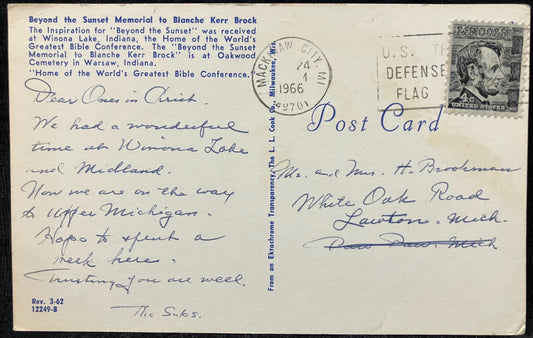 Beyond the Sunset Memorial to Blanche Kerr Brock
The Inspiration for "Beyond the Sunset" was received
at Winona Lake, Indiana, the Home of the World's
Greatest Bible Conference. The "Beyond the Sunset
Memorial to Blanche Kerr Brock" is at Oakwood
Cemetery in Warsaw, Indiana.
"Home of the World's Greatest Bible Conference."
Dear Ones in Christ.
We had a wonderful
time at Winona Lake
and Midland.
Now we are on the way
to Upper Michigan.
Hope to spent a
week here.
Trusting you are well.
The
Rev. 3-62
12249-B
From an Ektachrome Transparency The L. L. Cook Co., Milwaukee, Wis.
MACKINAW CITY, MI
24
1966
49701
U.S.
DEFENSE
FLAG
LINCOLN
4c
UNITED STATES
Post Card
Mr. and Mrs. H. Brookman
White Oak Road
Lawton, Mich.
Paw Paw, Mich